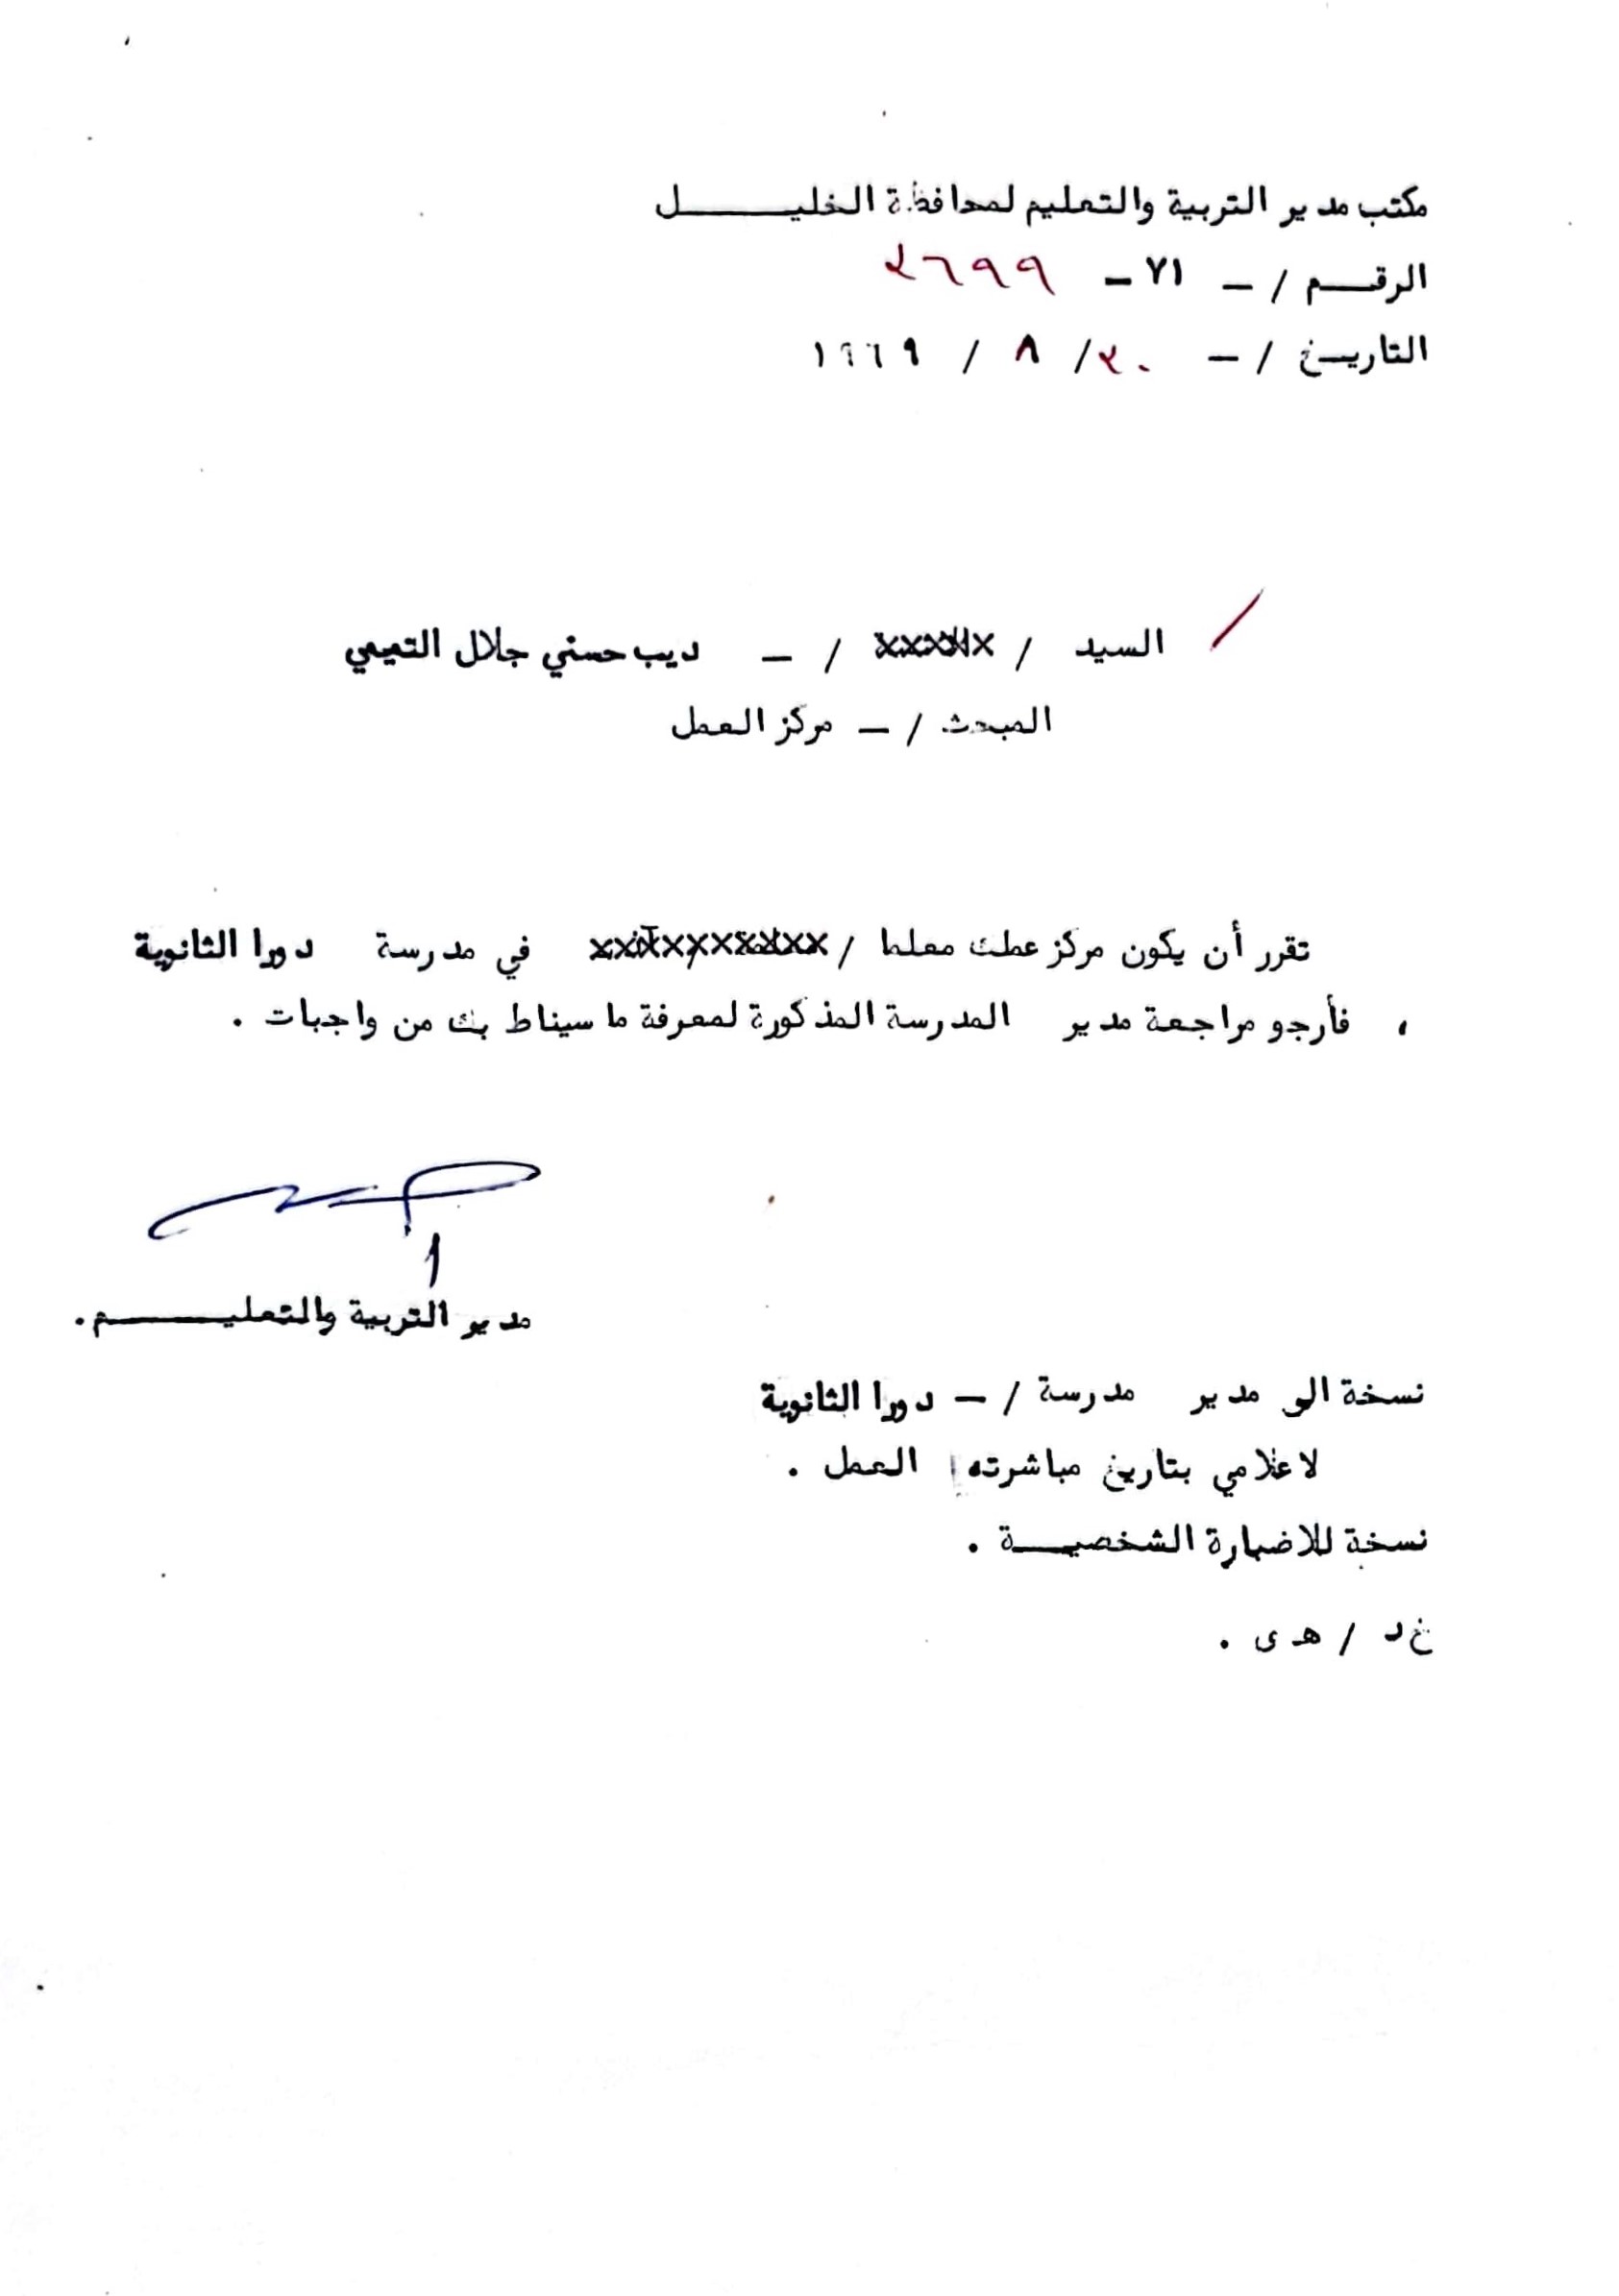 مكتب مدير التربية والتعليم لمحافظة الخليـــــل
الرقـــم / ـ ٧١ ـ ٢٦٩٩
التاريـخ / ـ ٢٠/ ٨ / ١٩٦٩
السيد / / ـ ديب حسني جلال التميمي
المبحث / ـ مركز العمل
تقرر أن يكون مركز عملك معلما / في مدرسة دورا الثانوية
، فأرجو مراجعة مدير المدرسة المذكورة لمعرفة ما سيناط بك من واجبات .
مدير التربية والتعليـــــم.
نسخة الى مدير مدرسة / ـ دورا الثانوية
لاعلامي بتاريخ مباشرته العمل .
نسخة للاضبارة الشخصيـــة .
خ د / هـ ى .